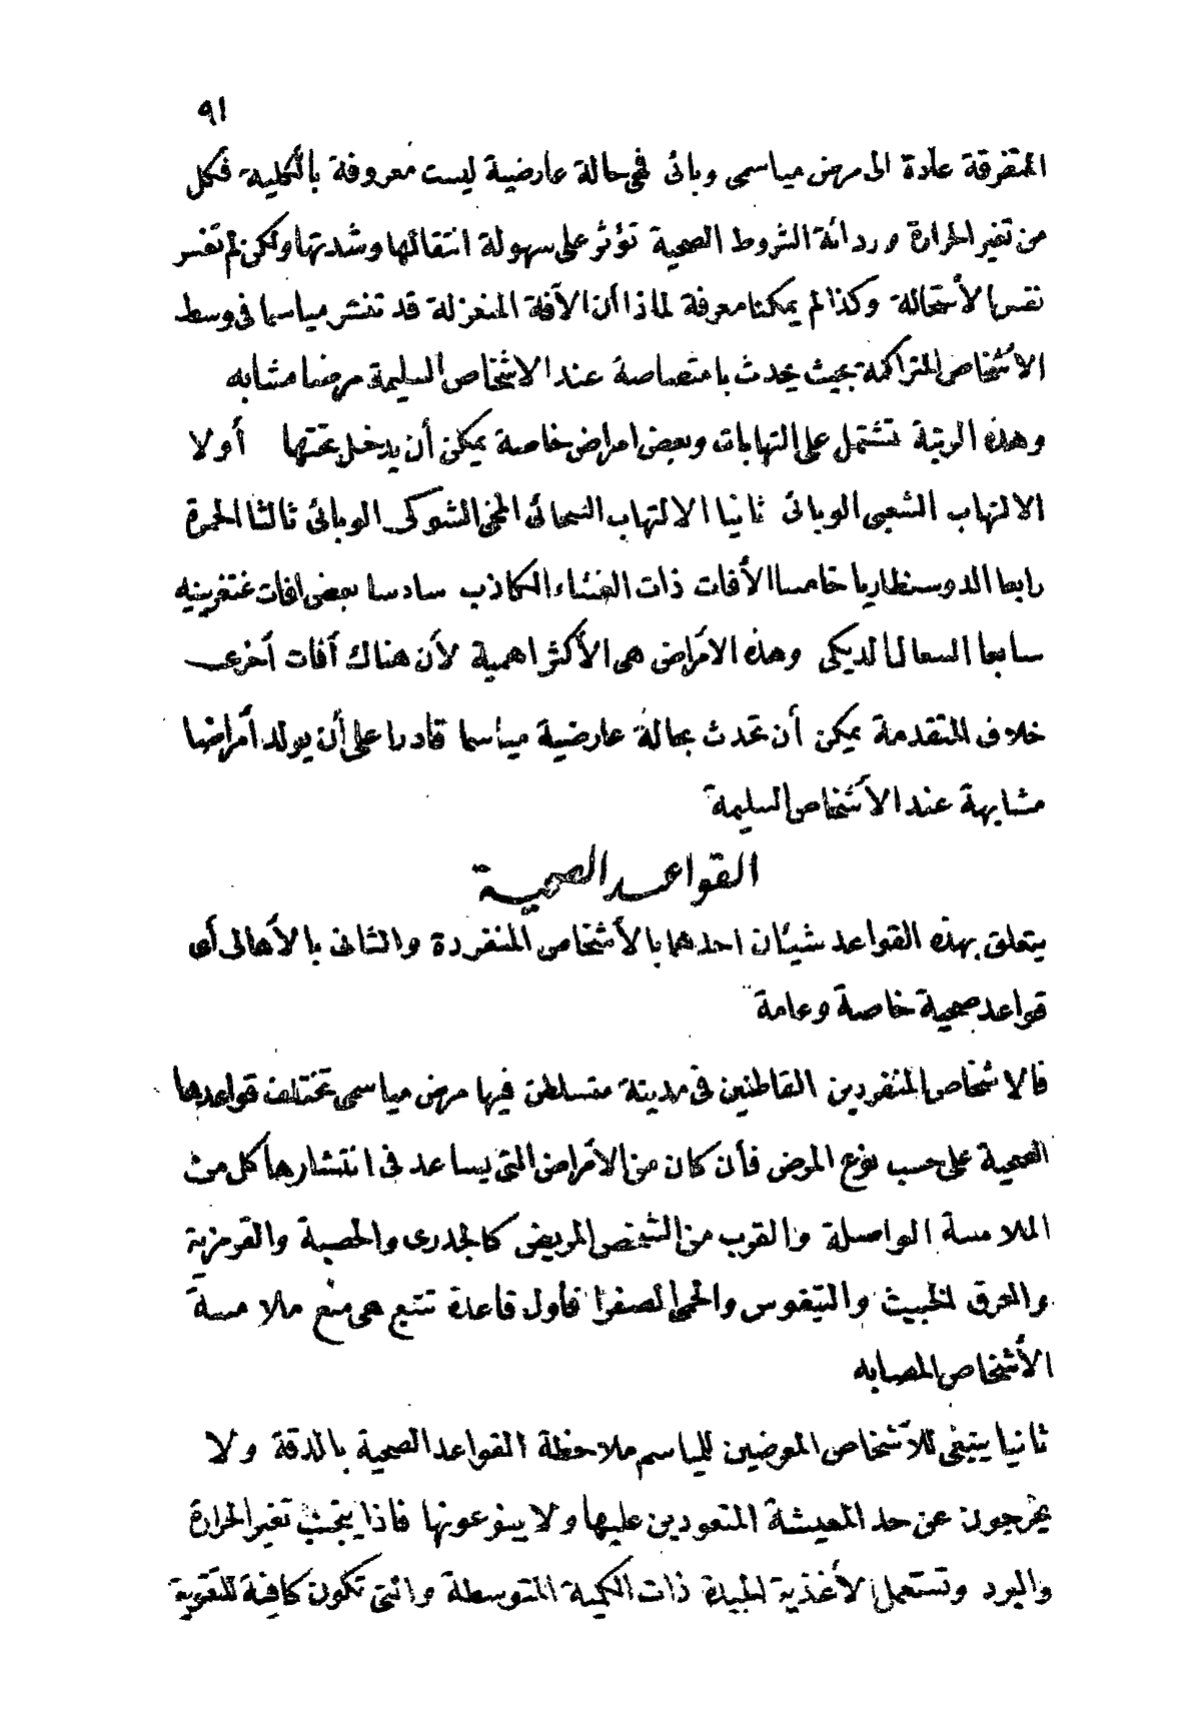 ٩١
المتفرقة عادة الى مرض مياسمى وبائى فهى حالة عارضية ليست معروفة بالكلية فكل
من تغير الحرارة وردائة الشروط الصحية تؤثر على سهولة انتقالها وشدتها ولكن لم تفسر
نفس الأستحالة وكذا لم يمكنا معرفة لماذا أن الآفة المنعزلة قد تنشر مياسما فى وسط
الأشخاص المتراكمة بحيث يحدث بامتصاصة عند الاشخاص السليمة مرضا مشابه
وهذه الرتبة تشتمل على التهابات وبعض امراض خاصة يمكن أن يدخل تحتها أولا
الالتهاب الشعبى الوبائى ثانيا الالتهاب السحائى المخى الشوكى الوبائى ثالثا الحمرة
رابعا الدوسنطاريا خامسا الأفات ذات الغشاء الكاذب سادسا بعض افات غنغرينيه
سابعا السعال الديكى وهذه الامراض هى الأكثر اهمية لأن هناك آفات أخرى
خلاف المتقدمة يمكن أن تحدث بحالة عارضية مياسما قادرا على أن يولد أمراضا
مشابهة عند الأشخاص السليمة
القواعد الصحية
يتعلق بهذه القواعد شيئان احدهما بالأشخاص المنفردة والثانى بالأهالى أى
قواعد صحية خاصة وعامة
فالاشخاص المنفردين القاطنين فى مدينة متسلطن فيها مرض مياسمى تختلف قواعدها
الصحية على حسب نوع المرض فأن كان من الأمراض التى يساعد فى انتشارها كل من
الملامسة الواصلة والقرب من الشخص المريض كالجدرى والحصبة والقرمزية
والعرق الخبيث والتيفوس والحمى الصفرا فأول قاعدة تتبع هى منع ملامسة
الأشخاص المصابه
ثانيا ينبغى للأشخاص المعرضين للمياسم ملاحظة القواعد الصحية بالدقة ولا
يخرجون عن حد المعيشة المتعودين عليها ولا ينوعونها فاذا يتجنب تغير الحرارة
والبرد وتستعمل الأغذية الجيدة ذات الكمية المتوسطة والتى تكون كافية للتقوية